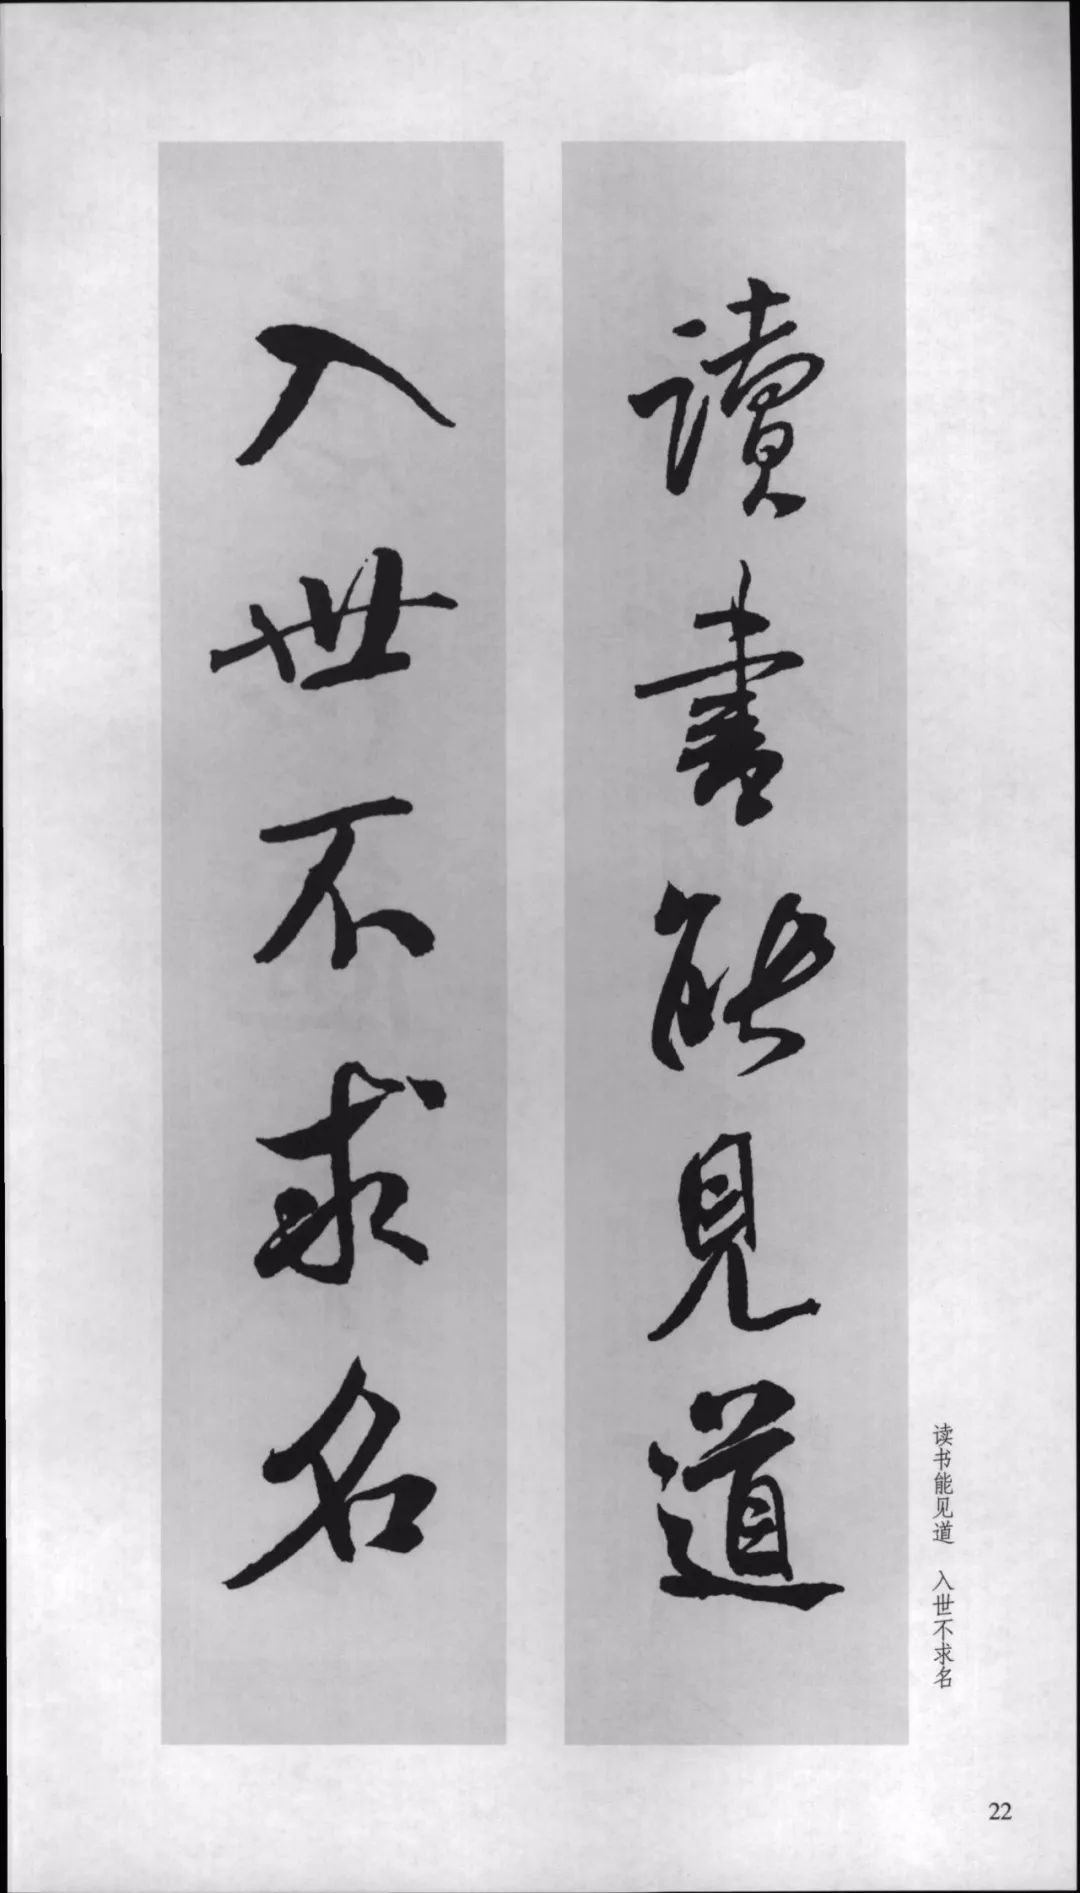 讀書能見道
入世不求名
读书能见道 入世不求名
22